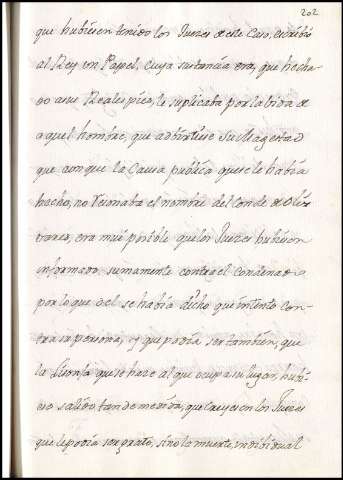 202
que hubiesen tenido los Juezes de este Caso, escribió
al Rey un Papel, cuya sustancia era, que hecha-
do a sus Reales pies, le suplicaba por la bida de
aquel hombre, que adbirtiese Su Magestad
que aunque la Causa publica que se le había
hecho, no resonaba el nombre del Conde de Oliv
tares, era mui posible que los Juezes hubiesen
informado sumamente contra el Condenado
por lo que del se había dicho que intentó con-
tra su persona, y que podia ser tambien, que
la lisonja que se hace al que ocupa su lugar, hubi-
ese salido tan de medida, que creyesen los Juezes
que le podia ser grato, sino la muerte, indibidual